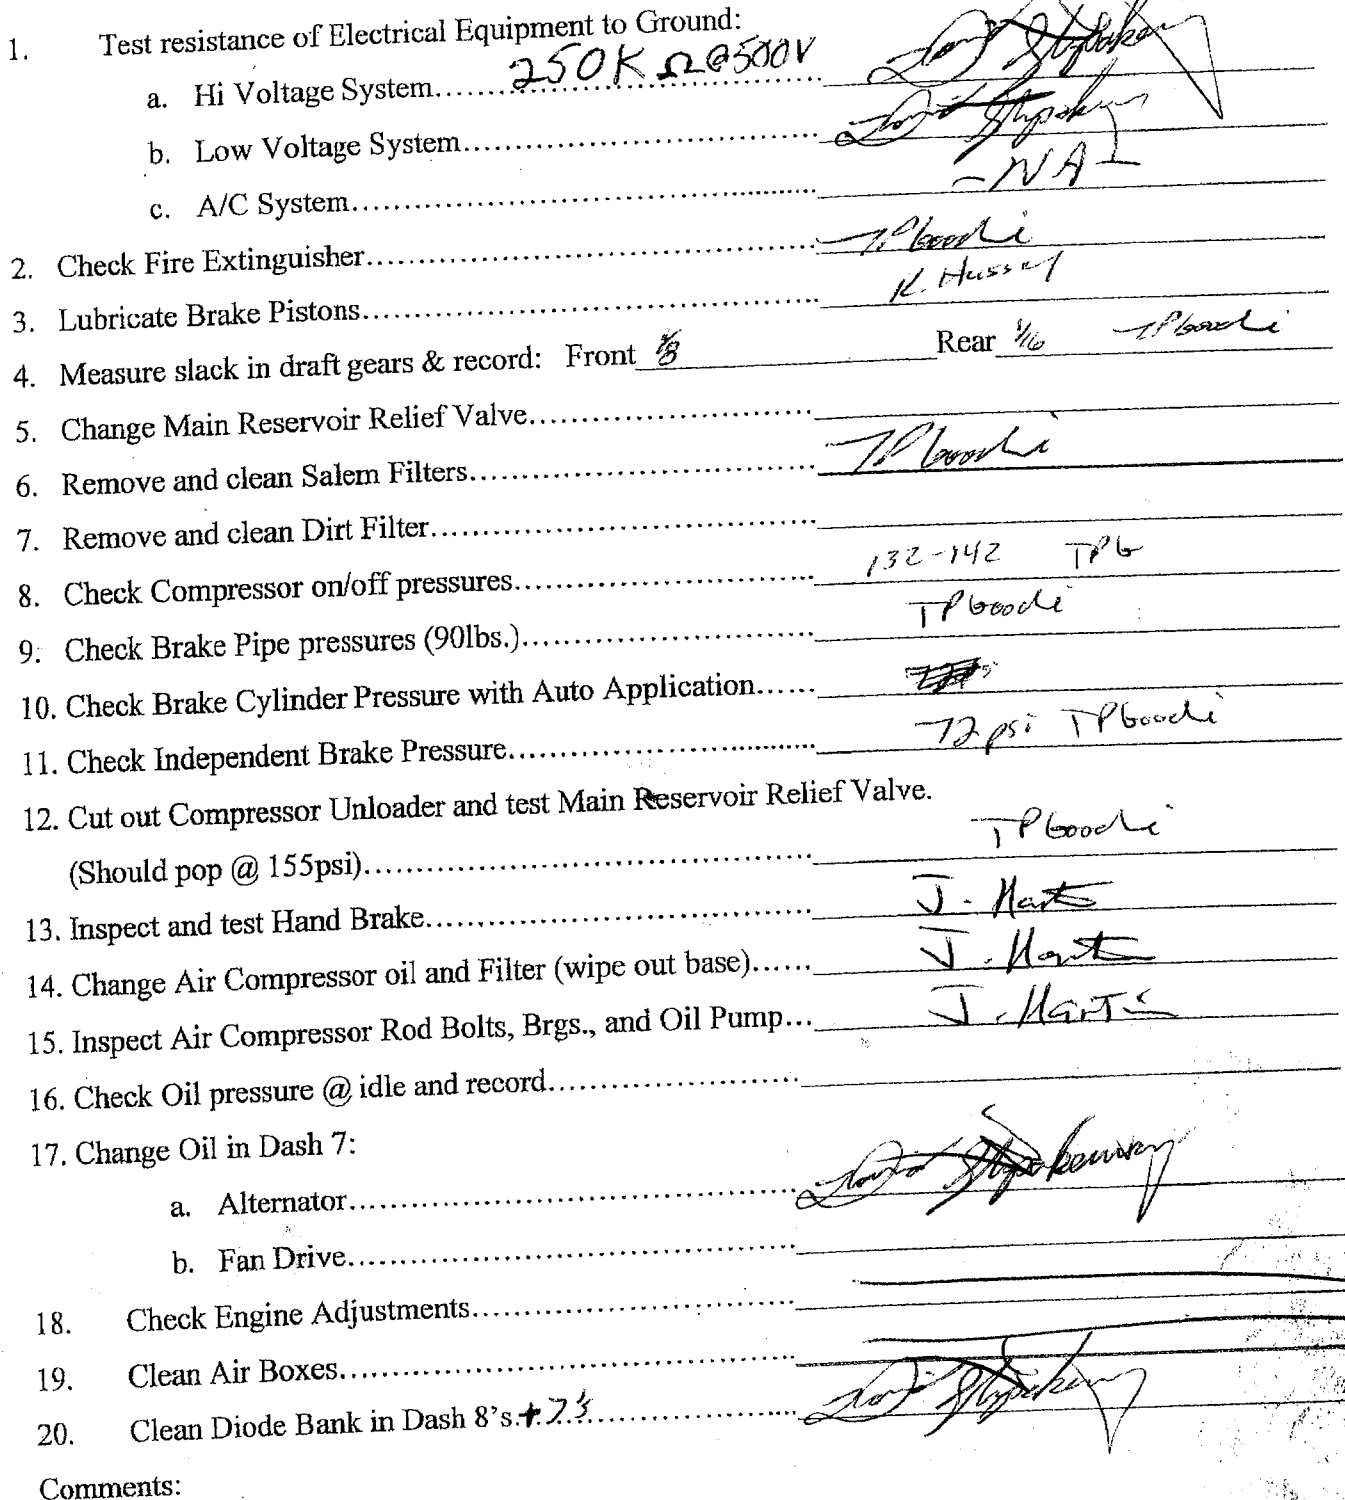 1. Test resistance of Electrical Equipment to Ground:
a. Hi Voltage System 250K Ω @500V
b. Low Voltage System
c. A/C System -NA-
2. Check Fire Extinguisher TPGoodi
3. Lubricate Brake Pistons K. Hussey
4. Measure slack in draft gears & record: Front Rear 1/16 TPGoodi
5. Change Main Reservoir Relief Valve
6. Remove and clean Salem Filters TPGoodi
7. Remove and clean Dirt Filter
8. Check Compressor on/off pressures 132-142 TPG
9. Check Brake Pipe pressures (90lbs.) TPGoodi
10. Check Brake Cylinder Pressure with Auto Application
11. Check Independent Brake Pressure 72 psi TPGoodi
12. Cut out Compressor Unloader and test Main Reservoir Relief Valve.
(Should pop @ 155psi) TPGoodi
13. Inspect and test Hand Brake J. Martin
14. Change Air Compressor oil and Filter (wipe out base) J. Martin
15. Inspect Air Compressor Rod Bolts, Brgs., and Oil Pump J. Martin
16. Check Oil pressure @ idle and record
17. Change Oil in Dash 7:
a. Alternator
b. Fan Drive
18. Check Engine Adjustments
19. Clean Air Boxes
20. Clean Diode Bank in Dash 8's + 7's
Comments: